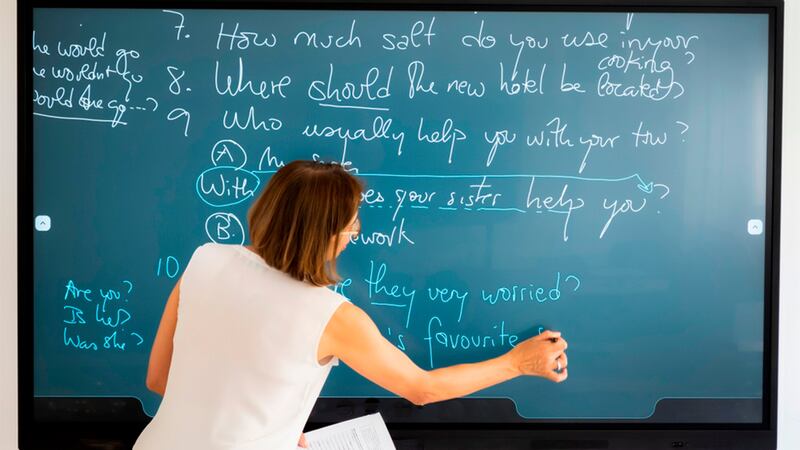 he would go
he wouldn't go
would she go ....?
7. How much salt do you use in your
cooking?
8. Where should the new hotel be located?
9 Who usually help you with your tow?
A
With your sister help you?
B. work
10 they very worried?
Are you?
Is he?
Was she?
's favourite